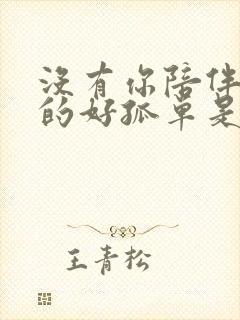 沒有你陪伴
的好孤單是
王青松